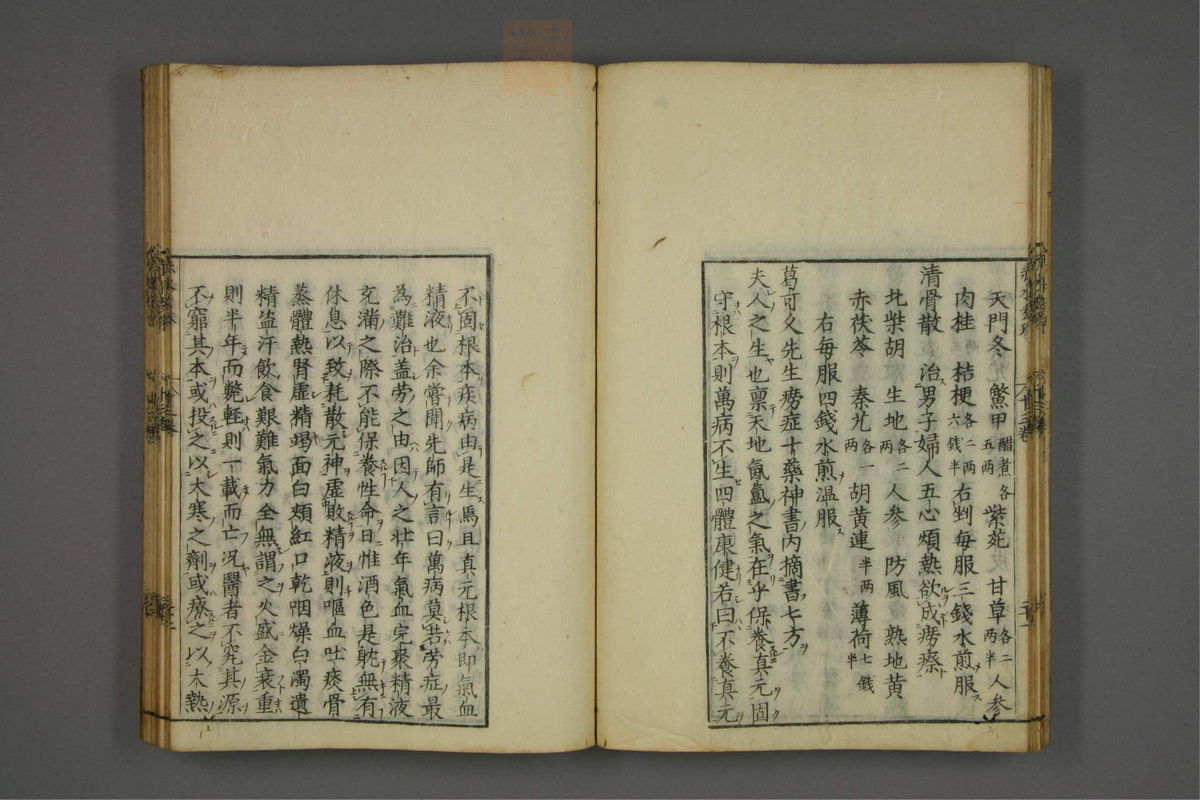 天門冬 鱉甲醋煮各五兩 紫菀 甘草各二兩半 人參
肉桂 桔梗各二兩六錢半 右剉每服三錢水煎服
清骨散 治男子婦人五心煩熱欲成癆瘵
北柴胡 生地各二兩 人參 防風 熟地黄
赤茯苓 秦艽各一兩 胡黄連半兩 薄荷七錢半
右每服四錢水煎温服
葛可久先生癆症十藥神書内摘書七方
夫人之生也禀天地氤氳之氣在乎保養真元固
守根本則萬病不生四體康健若曰不養真元
不固根本疾病由是生焉且真元根本即氣血
精液也余嘗聞先師有言曰萬病莫若勞症最
為難治盖勞之由因人之壮年氣血完聚精液
充滿之際不能保養性命日惟酒色是躭無有
休息以致耗散元神虚敗精液則嘔血吐痰骨
蒸體熱腎虚精竭面白頰紅口乾咽燥白濁遺
精盗汗飲食艱難氣力全無謂之火盛金衰重
則半年而斃輕則一載而亡况醫者不究其源
不窮其本或投之以大寒之劑或療之以大熱